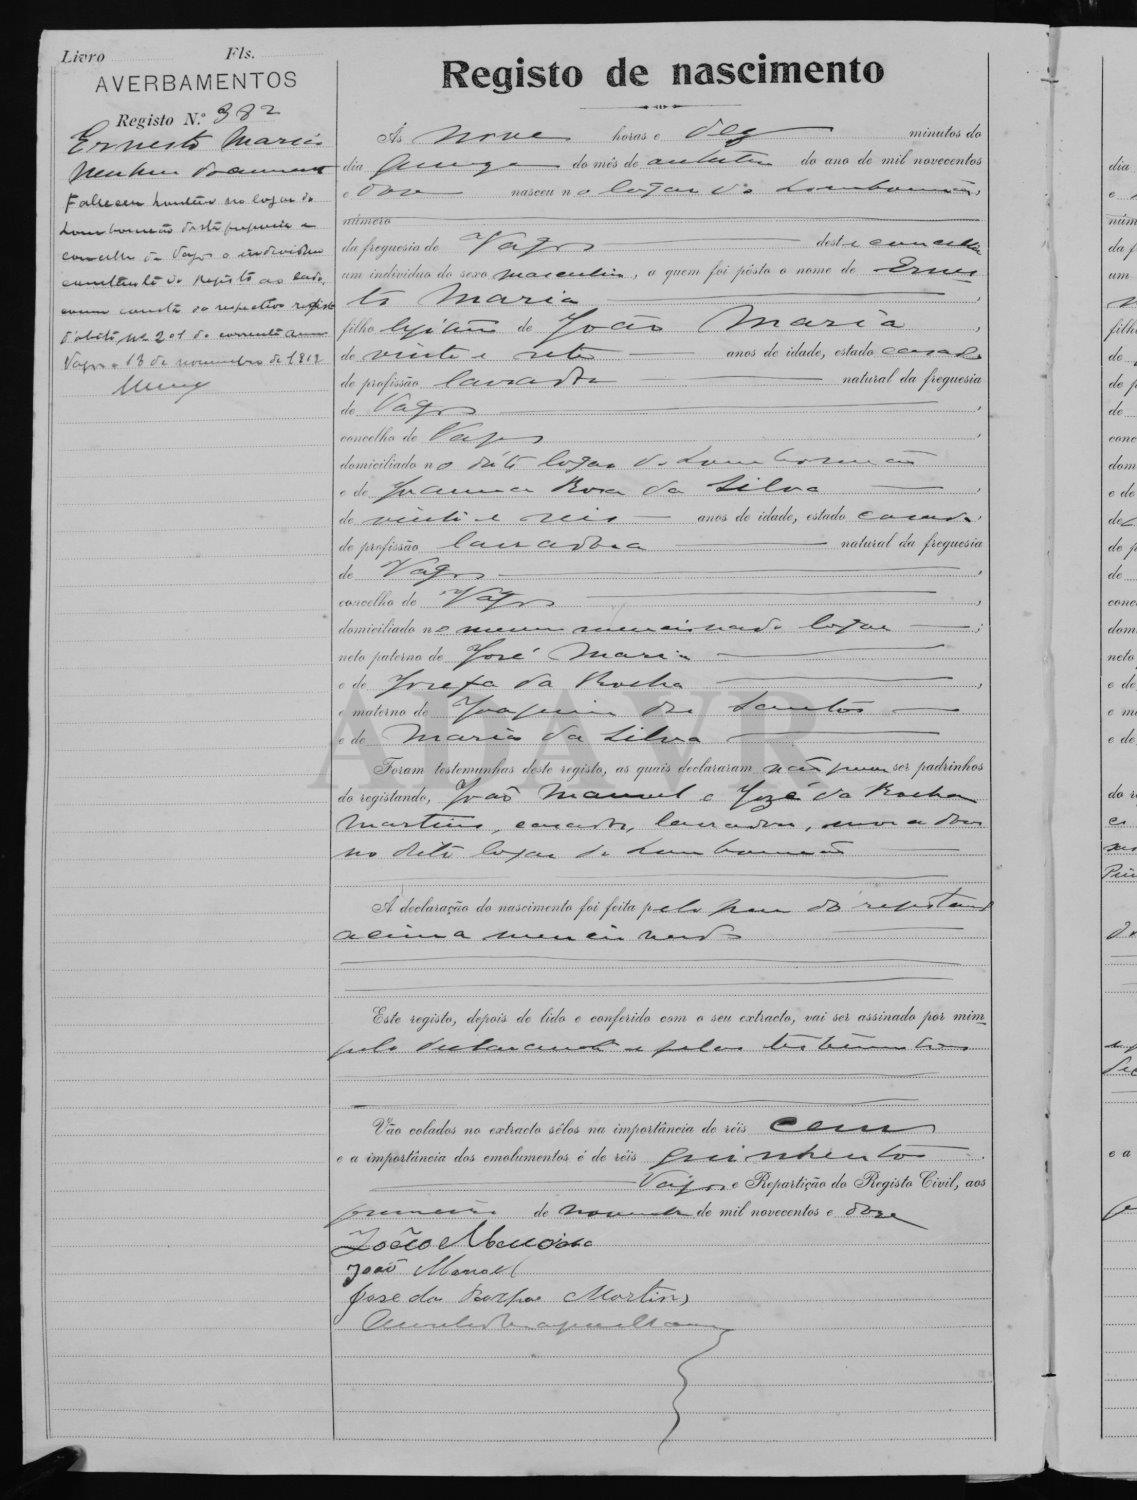 Livro Fls.
AVERBAMENTOS
Registo N.º 382
Ernesto Maria
Nenhum documento
Faleceu hontem no logar de
Lombomeão desta freguesia e
concelho de Vagos o individuo
constante do Registo ao lado,
como consta do respectivo registo
d'obito nº 201 do corrente anno
Vagos 13 de novembro de 1912
Registo de nascimento
Ás nove horas e dez minutos do
dia quinze do mês de outubro do ano de mil novecentos
e doze nasceu no logar de Lombomeão,
número
da freguesia de Vagos deste concelho
um individuo do sexo masculino, a quem foi pôsto o nome de Ernes
to Maria,
filho legitimo de João Maria,
de vinte e sete anos de idade, estado casado
de profissão lavrador natural da freguesia
de Vagos,
concelho de Vagos,
domiciliado no dito logar de Lombomeão
e de Joanna Rosa da Silva,
de vinte e seis anos de idade, estado casada,
de profissão lavradora natural da freguesia
de Vagos,
concelho de Vagos,
domiciliado no mesmo mencionado logar;
neto paterno de José Maria
e de Josefa da Rocha,
e materno de Joaquim dos Santos
e de Maria da Silva
Foram testemunhas deste registo, as quais declararam não querer ser padrinhos
do registando, João Manuel e José da Rocha
Martins, casados, lavradores, moradores
no dito logar de Lombomeão
A declaração do nascimento foi feita pelo pae do registando
acima mencionado
Este registo, depois de lido e conferido com o seu extracto, vai ser assinado por mim
pelo declarante e pelas testemunhas
Vão colados no extracto sêlos na importância de réis cem
e a importância dos emolumentos é de réis quinhentos.
Vagos e Repartição do Registo Civil, aos
primeiro de novembro de mil novecentos e doze
João Maria
João Manuel
Jose da Rocha Martins
ADAVR